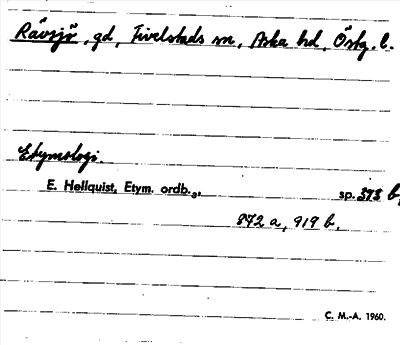 Rävsjö, gd, Tivelstads sn, Aska hd, Östg. l.
Etymologi.
E. Hellquist, Etym. ordb.₂, sp. 373 b,
872 a, 919 b.
C. M.-A. 1960.